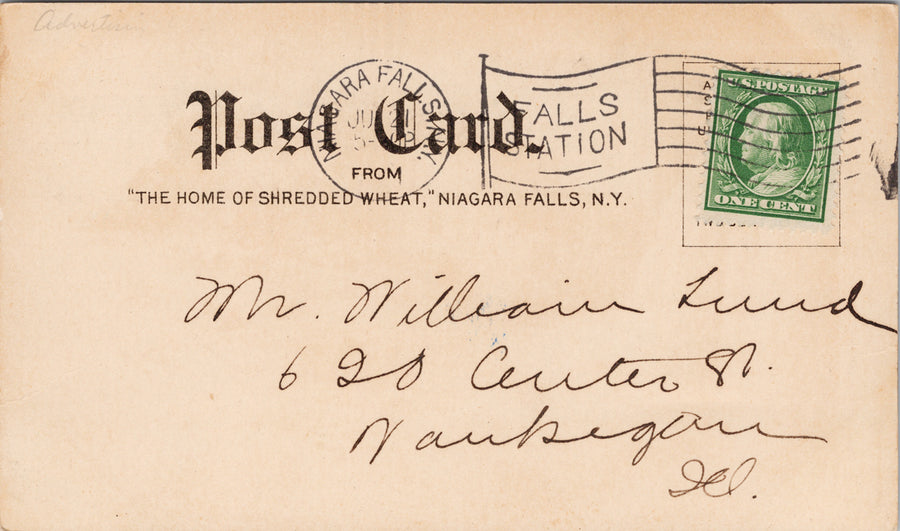 Advertising
Post Card.
NIAGARA FALLS, N.Y.
FALLS
STATION
U.S. POSTAGE
ONE CENT
FROM
"THE HOME OF SHREDDED WHEAT," NIAGARA FALLS, N.Y.
Mr. William Lund
620 Center St.
Waukegan
Ill.